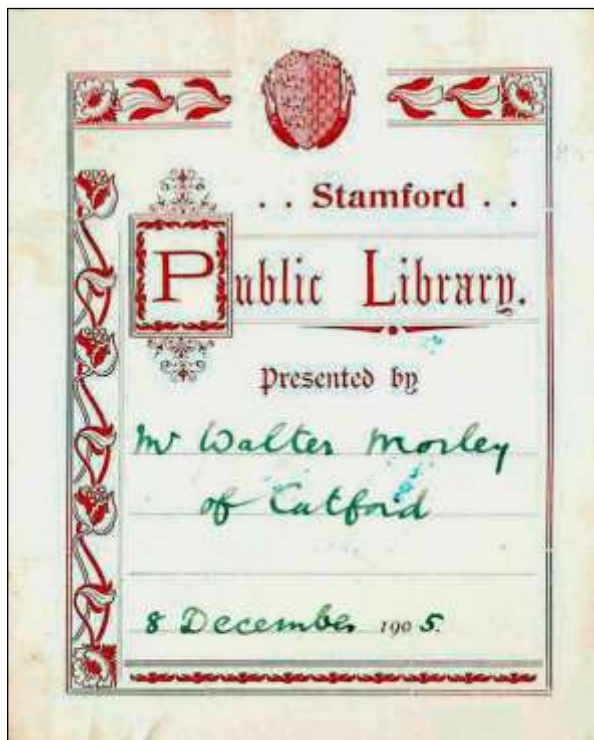 . . Stamford . .
Public Library.
Presented by
Mr Walter Morley
of Catford
8 December 1905.